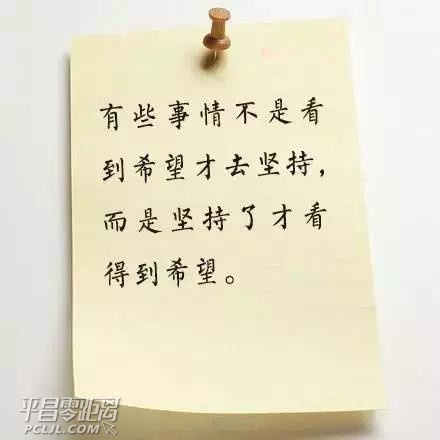 有些事情不是看
到希望才去坚持，
而是坚持了才看
得到希望。
平昌零距离
PCLJL.COM